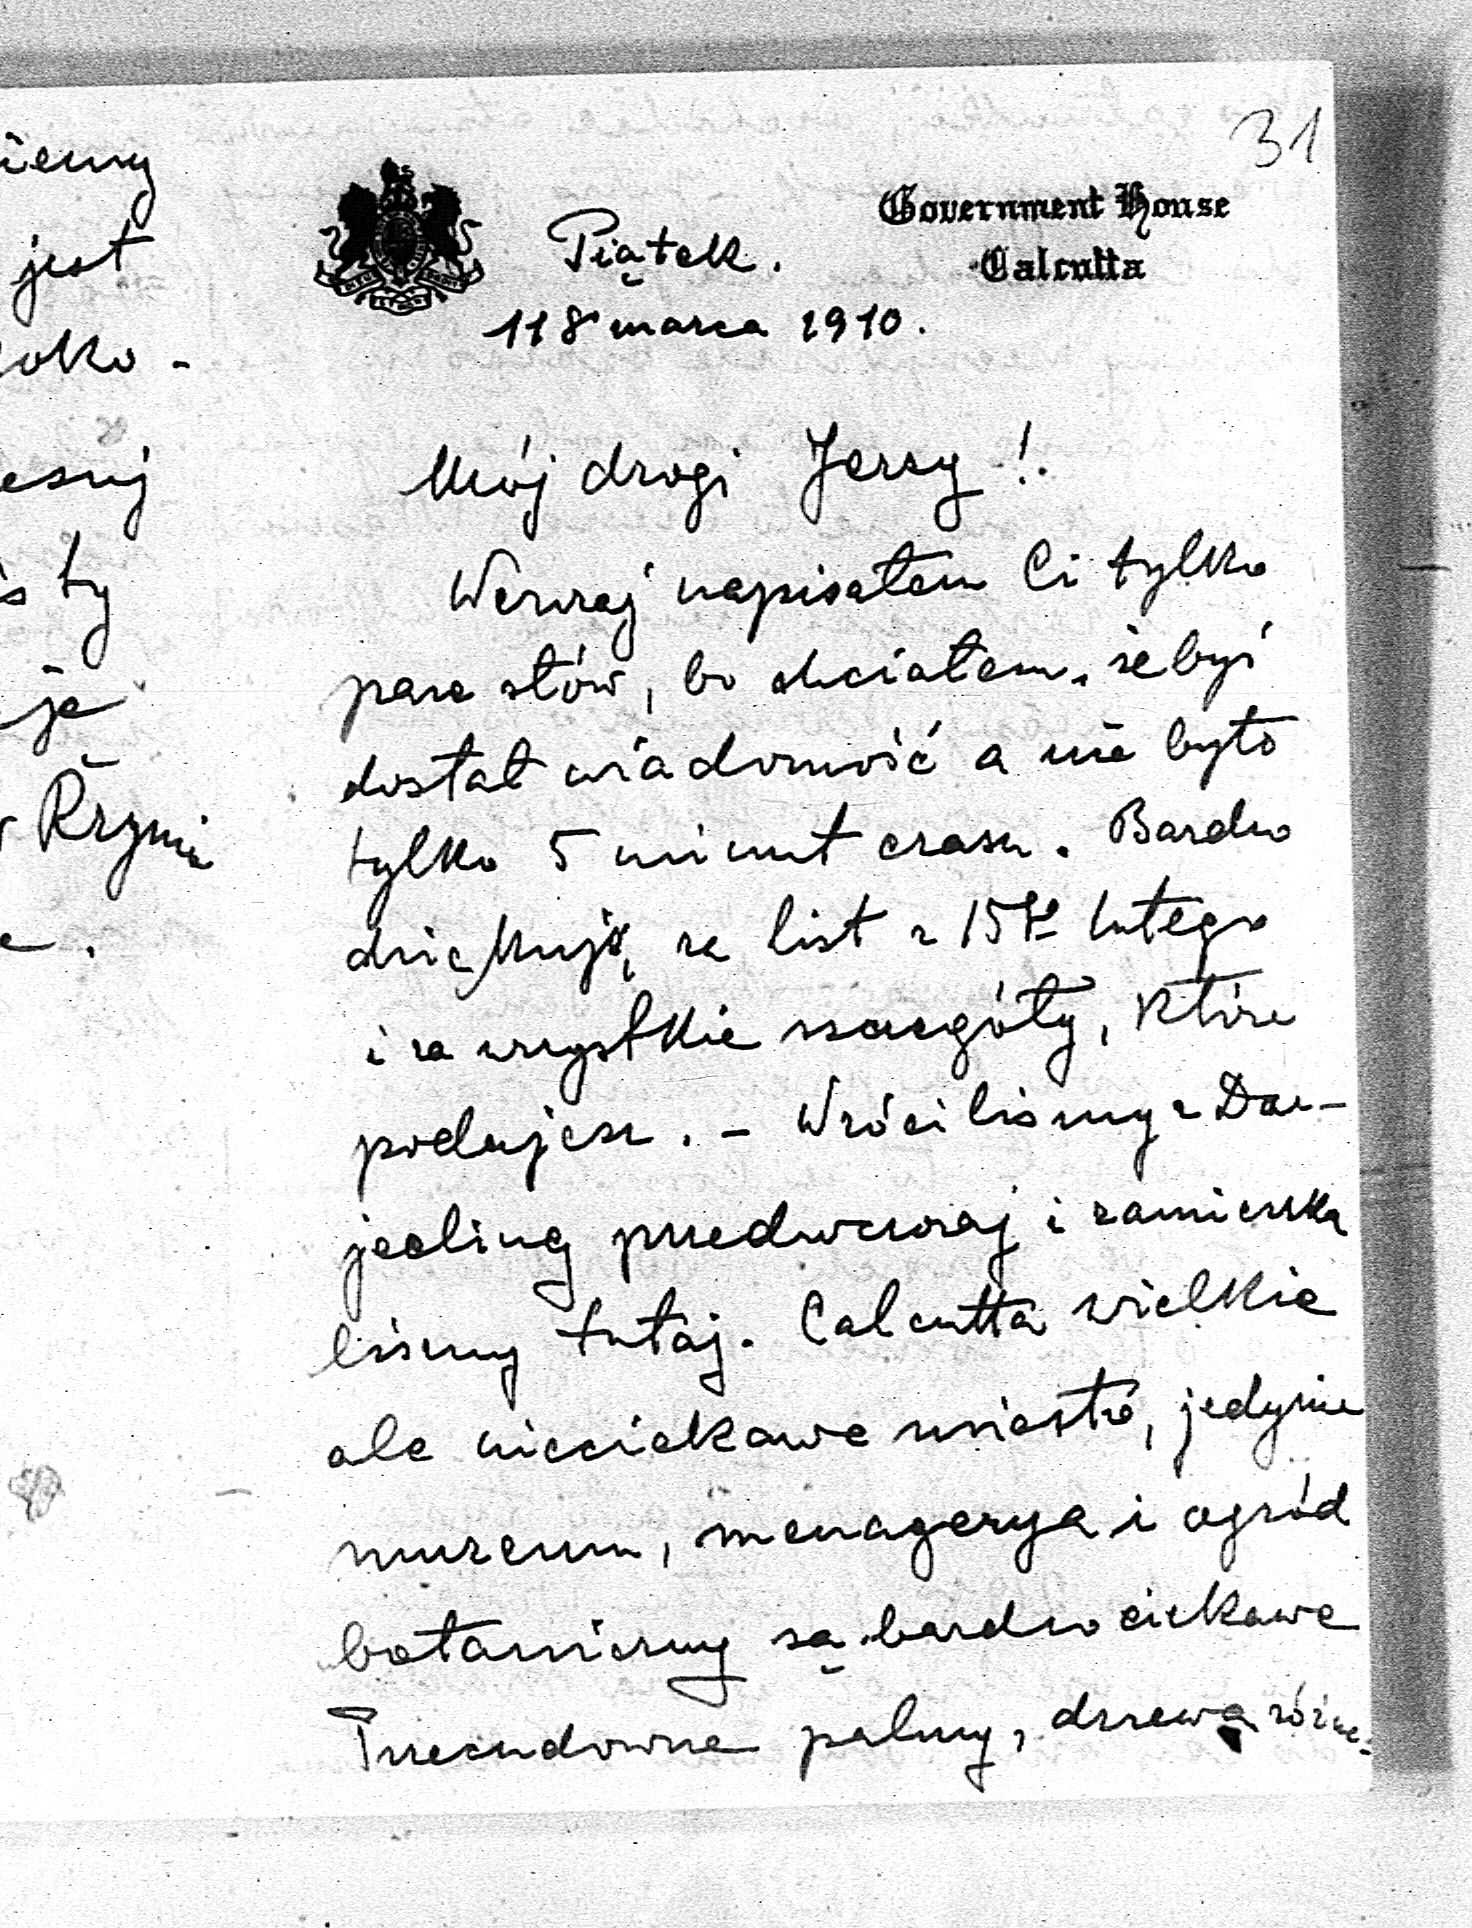 31
Government House
Calcutta
Piątek.
118 marca 1910.
Mój drogi Jerzy!
Wczoraj napisałem Ci tylko
parę słów, bo chciałem, żebyś
dostał wiadomość a nie było
tylko 5 minut czasu. Bardzo
dziękuję za list z 15go lutego
i za wszystkie szczegóły, które
podajesz. – Wróciliśmy z Dar-
jeeling przedwczoraj i zamieszka
liśmy tutaj. Calcutta wielkie
ale nieciekawe miasto, jedynie
muzeum, menagerya i ogród
botaniczny są bardzo ciekawe
Przecudowne palmy, drzewa różne-
iemy
jest
is ty
je
Rzymie